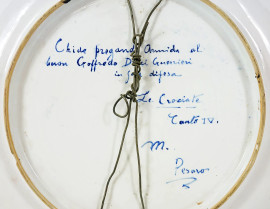 Chiede pregando Armida al
buon Goffredo Dieci Guerrieri
in sua difesa
Le Crociate
Canto IV.
M.
Pesaro